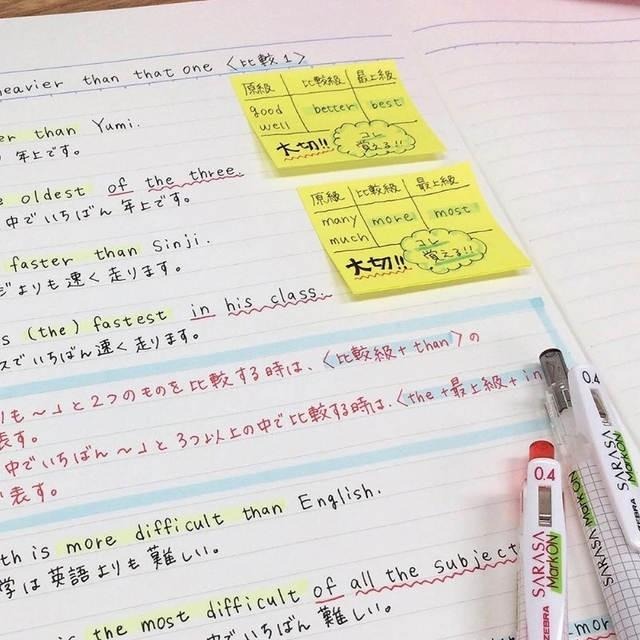 heavier than that one 〈比較1〉
er than Yumi.
年上です。
e oldest of the three.
中でいちばん年上です。
faster than Sinji.
よりも速く走ります。
s (the) fastest in his class.
スでいちばん速く走ります。
りも~」と2つのものを比較する時は、〈比較級+than〉の
表す。
中でいちばん~」と3つ以上の中で比較する時は、〈the+最上級+in
表す。
th is more difficult than English.
学は英語よりも難しい。
s the most difficult of all the subject
中でいちばん難しい。
mor
原級 比較級 最上級
good better best
well
大切!! コレ
覚える!!
原級 比較級 最上級
many more most
much
大切!! コレ
覚える!!
0.4
SARASA
MarkON
ZEBRA
0.4
SARASA
MarkON
ZEBRA